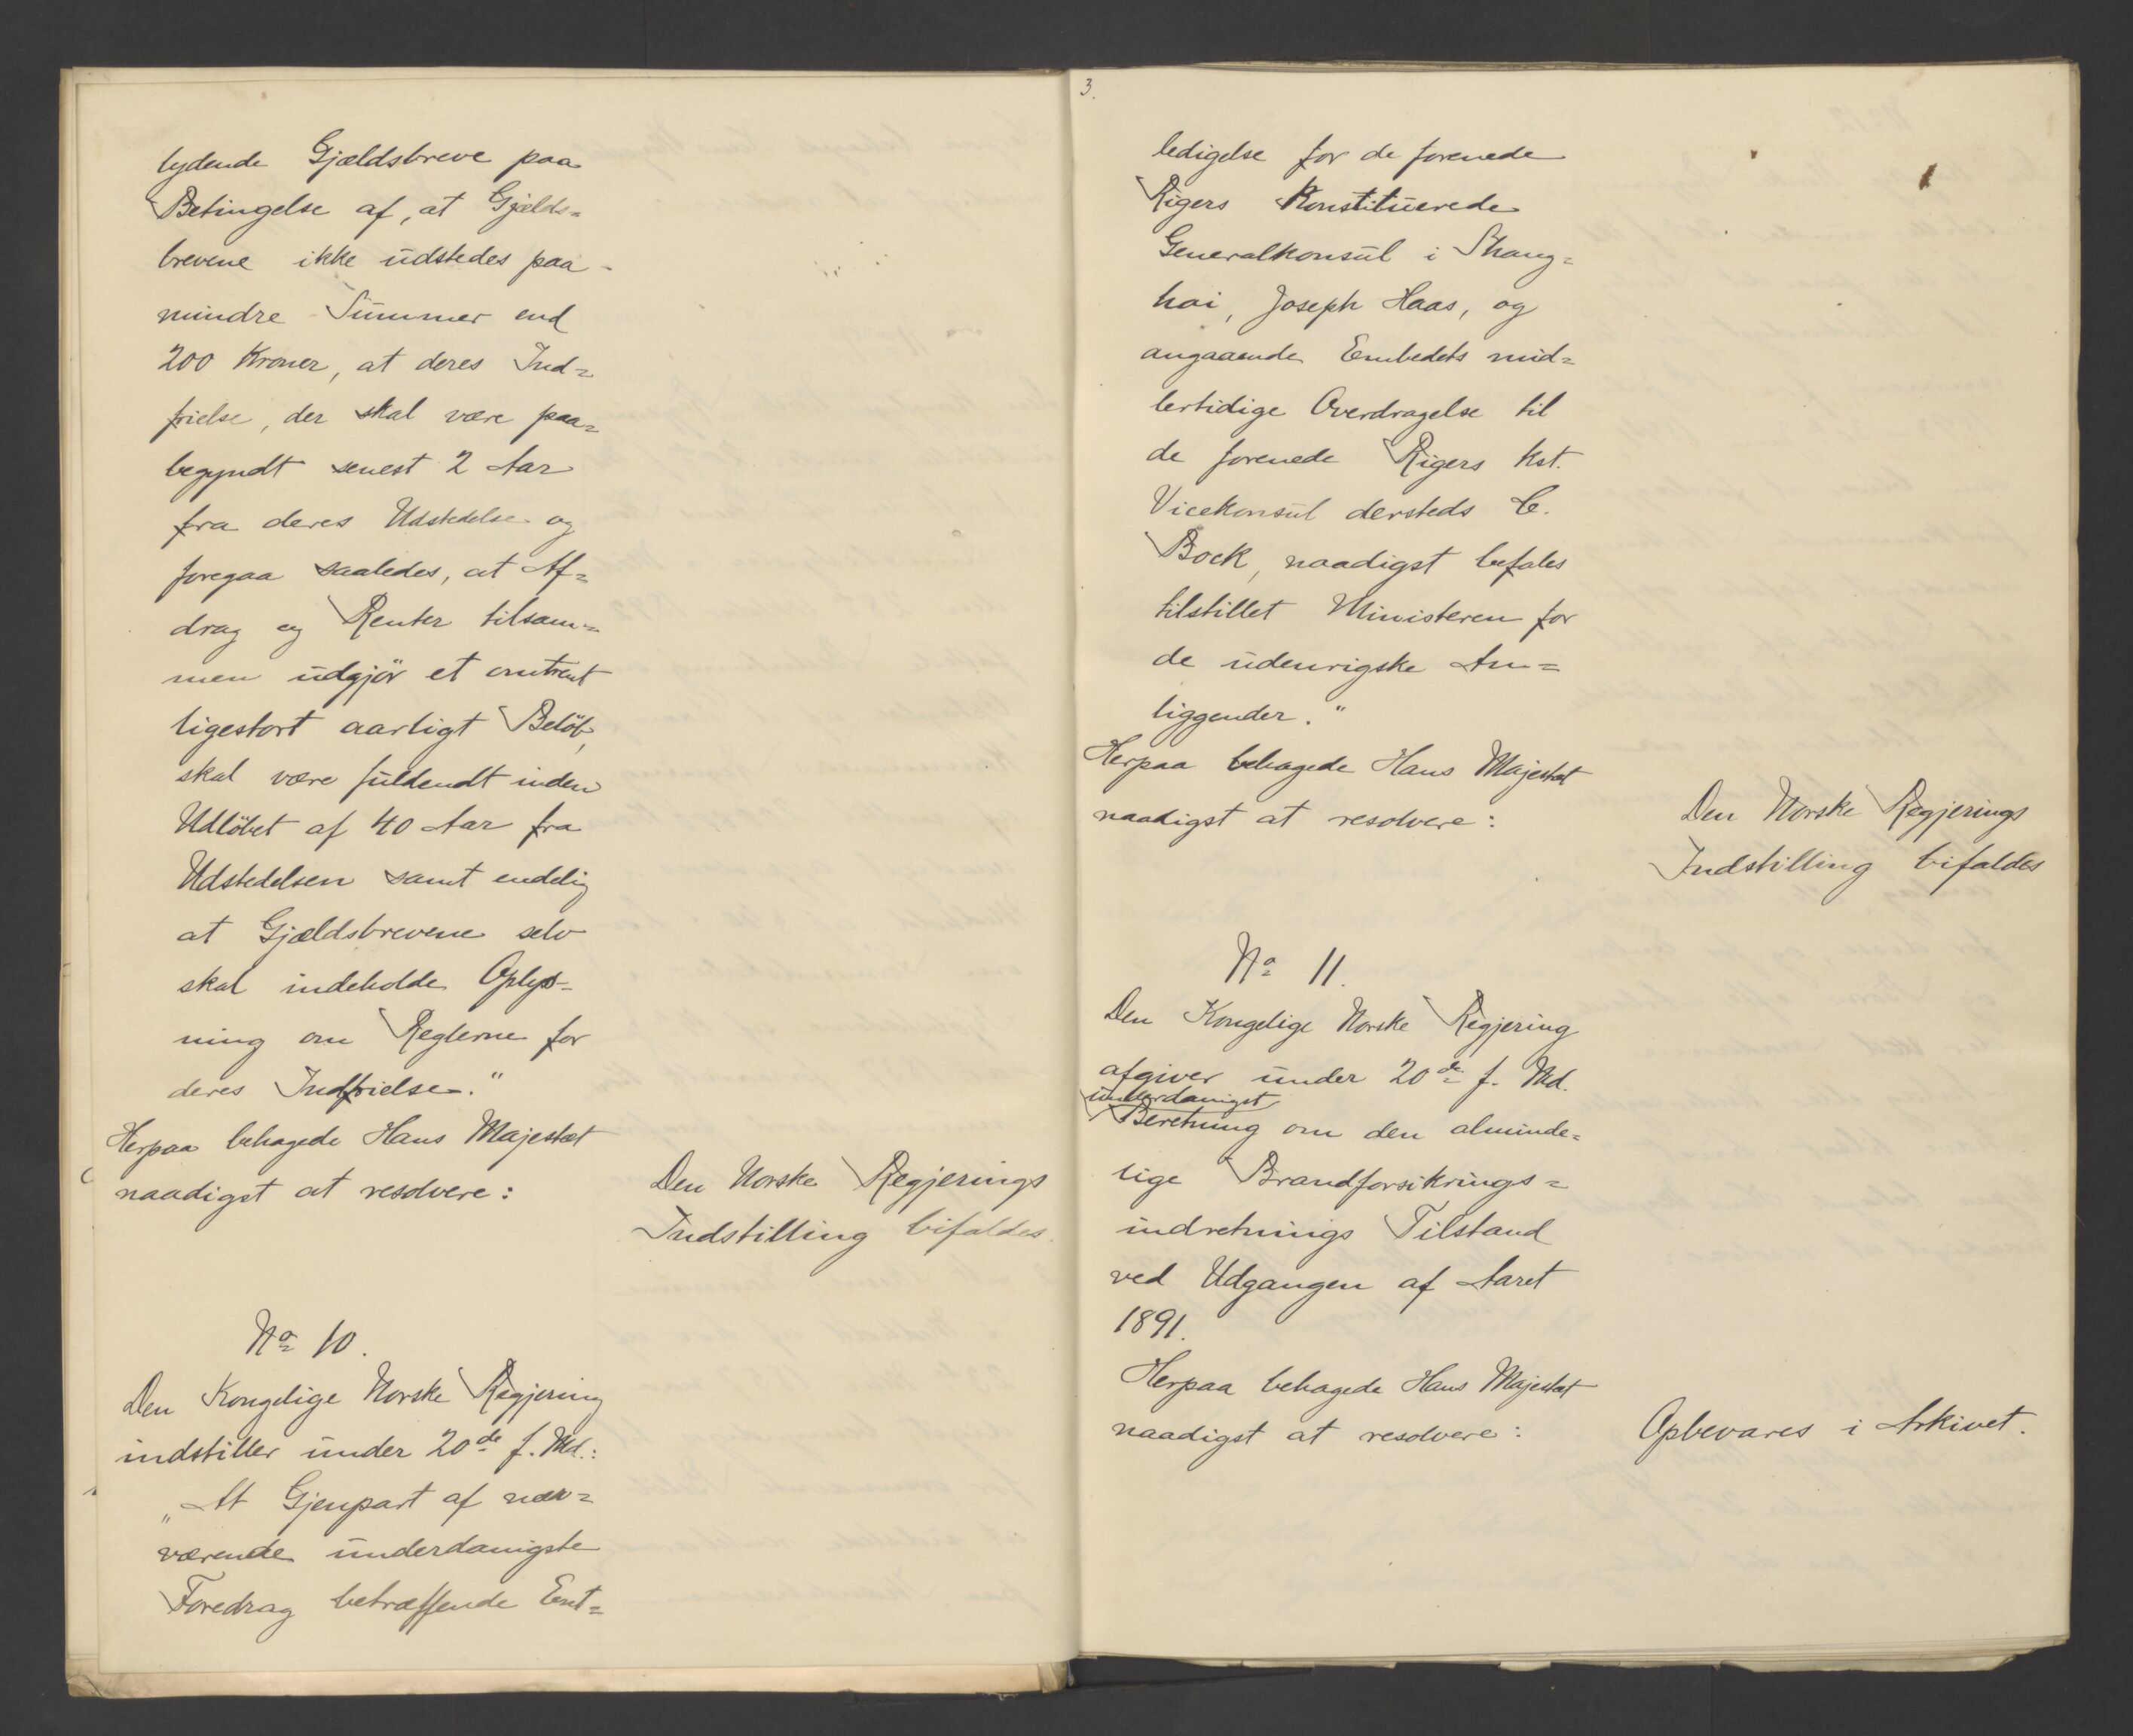 lydende Gjældsbreve paa
Betingelse af, at Gjælds=
brevene ikke udstedes paa
mindre Summer end
200 Kroner, at deres Ind=
frielse, der skal være paa=
begyndt senest 2 Aar
fra deres Udstedelse og
foregaa saaledes, at Af=
drag og Renter tilsam=
men udgjör et omtrent
ligestort aarligt Belöb,
skal være fuldendt inden
Udlöbet af 40 Aar fra
Udstedelsen samt endelig
at Gjældsbrevene selv
skal indeholde Oplys=
ning om Reglerne for
deres Indfrielse."
Herpaa behagede Hans Majestæt
naadigst at resolvere:
Den Norske Regjerings
Indstilling bifaldes.
No 10.
Den Kongelige Norske Regjering
indstiller under 20de f. Md.:
„At Gjenpart af nær=
værende underdanigste
Foredrag betræffende Ent=
3.
ledigelse for de forenede
Rigers Konstituerede
Generalkonsul i Shang=
hai, Joseph Haas, og
angaaende Embedets mid=
lertidige Overdragelse til
de forenede Rigers kst.
Vicekonsul dersteds C.
Bock, naadigst befales
tilstillet Ministeren for
de udenrigske An=
liggender."
Herpaa behagede Hans Majestæt
naadigst at resolvere:
Den Norske Regjerings
Indstilling bifaldes
No 11.
Den Kongelige Norske Regjering
afgiver under 20de f. Md.
underdanigst
Beretning om den alminde=
lige Brandforsikrings=
indretnings Tilstand
ved Udgangen af Aaret
1891.
Herpaa behagede Hans Majestæt
naadigst at resolvere:
Opbevares i Arkivet.